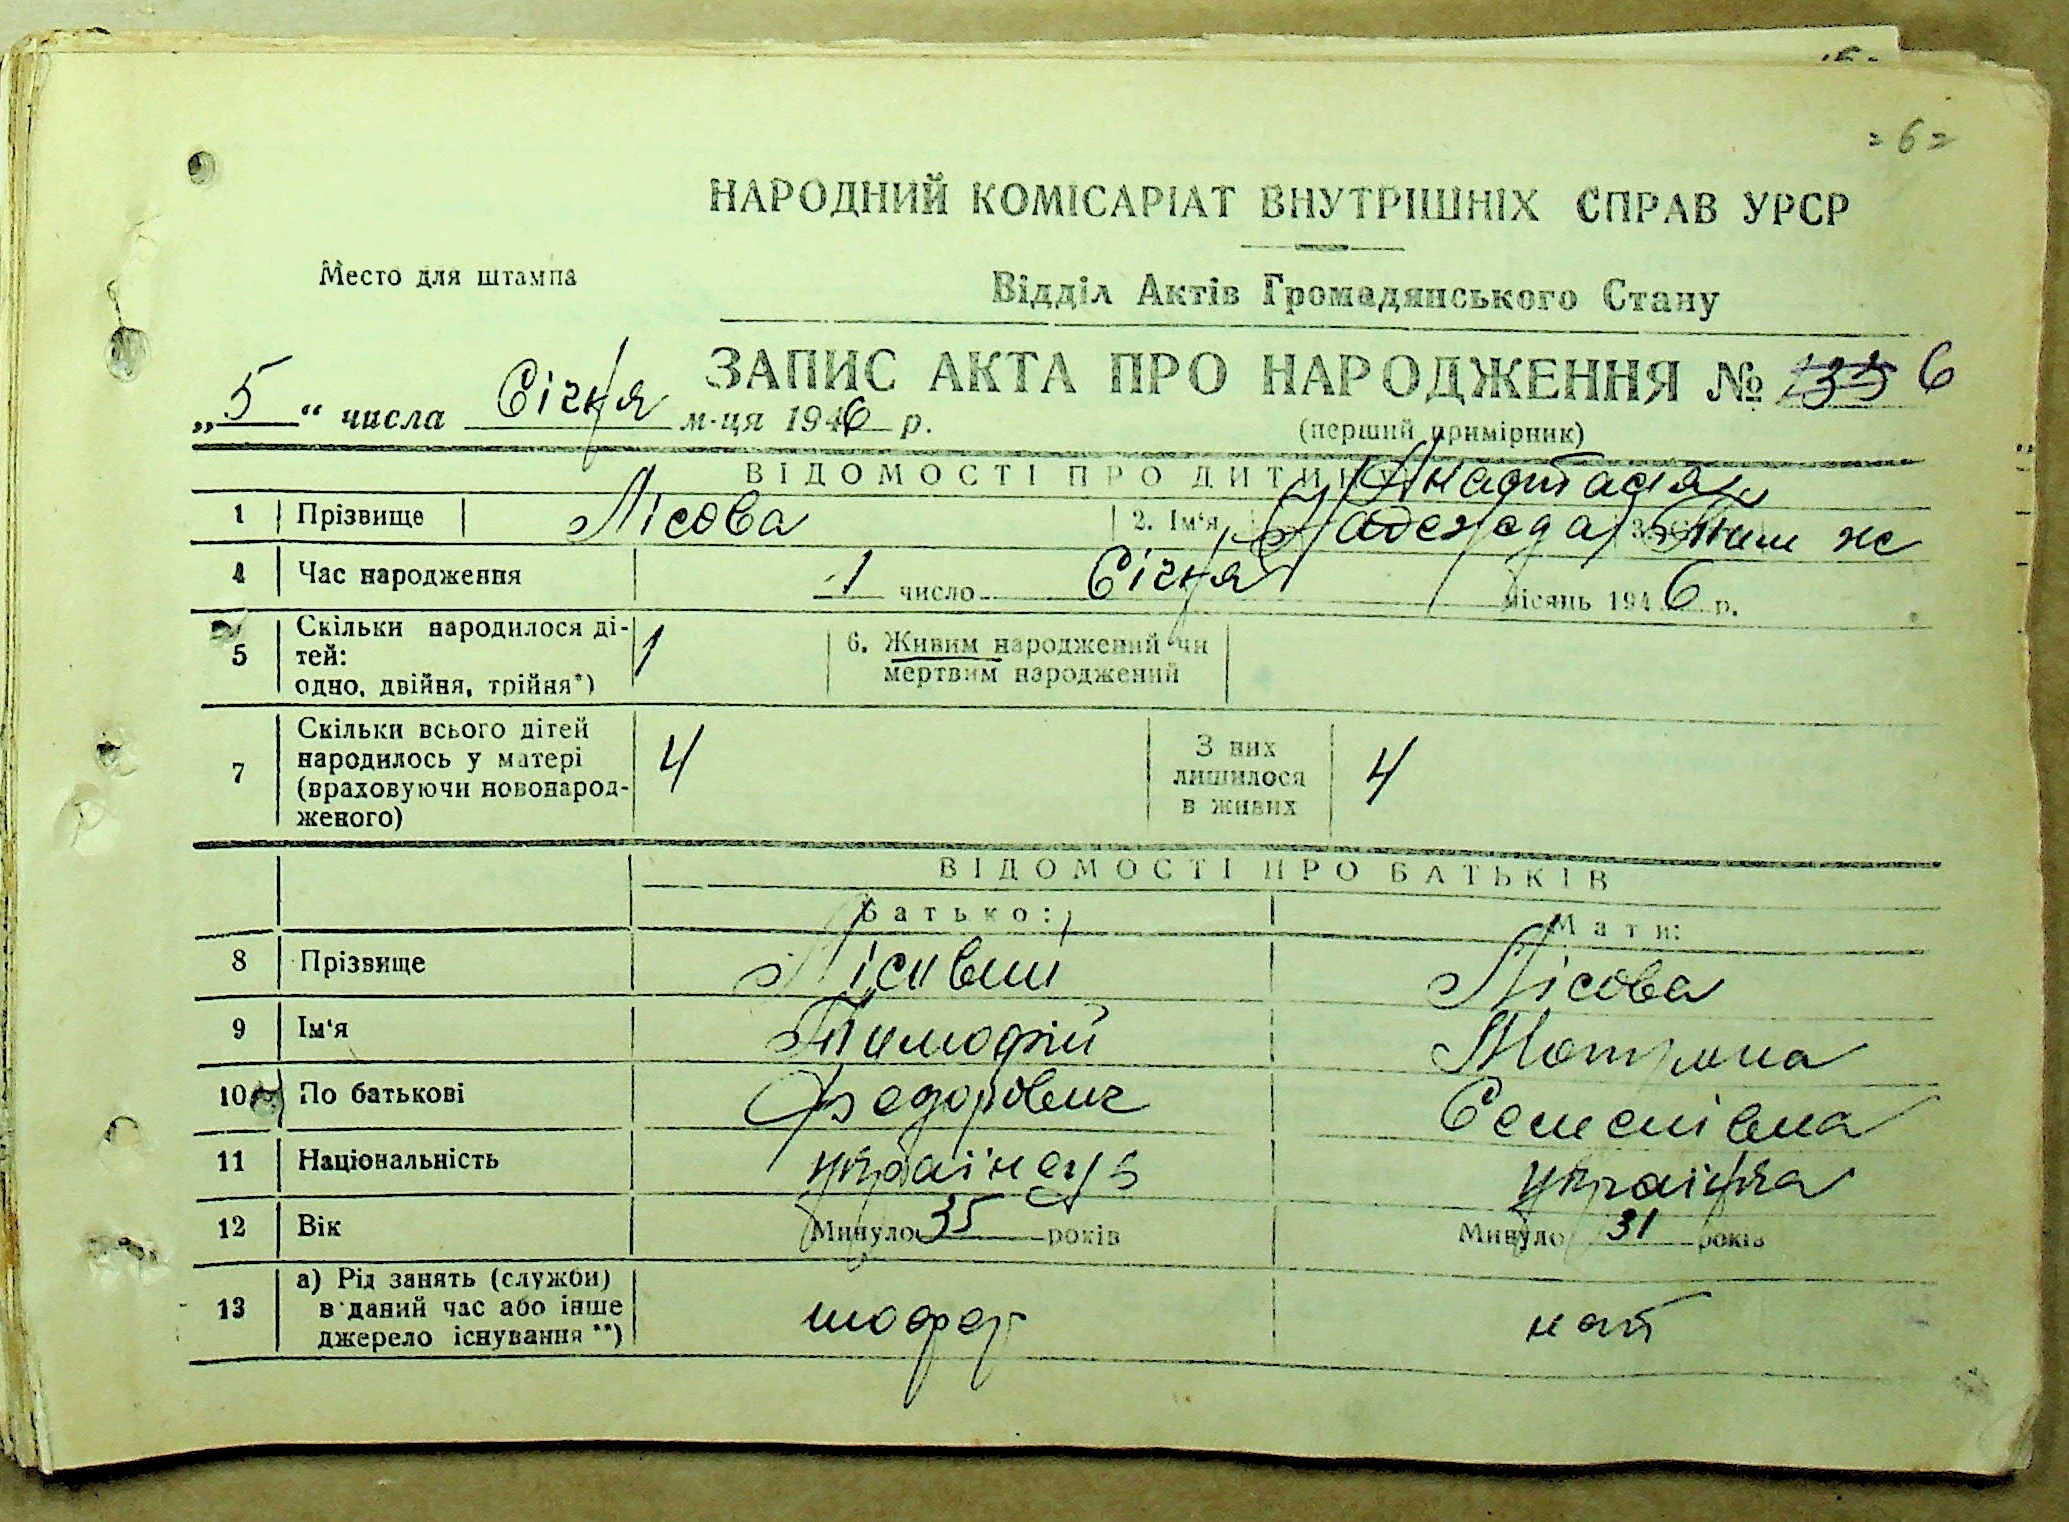 = 6 =
НАРОДНИЙ КОМІСАРІАТ ВНУТРІШНІХ СПРАВ УРСР
Место для штампа
Відділ Актів Громадянського Стану
ЗАПИС АКТА ПРО НАРОДЖЕННЯ № 6
„5“ числа Січня м-ця 1946 р.
(перший примірник)
ВІДОМОСТІ ПРО ДИТИНУ
Анастасія
1 Прізвище Лісова 2. Ім'я Надежда
4 Час народження 1 число Січня місяць 1946 р.
5 Скільки народилося ді-
тей:
одно, двійня, трійня*)
1
6. Живим народжений чи
мертвим народжений
7 Скільки всього дітей
народилось у матері
(враховуючи новонарод-
женого)
4
З них
лишилося
в живих
4
ВІДОМОСТІ ПРО БАТЬКІВ
Батько: Мати:
8 Прізвище Лісовий Лісова
9 Ім'я Тимофій Мотрона
10 По батькові Федорович Семенівна
11 Національність українець українка
12 Вік Минуло 35 років Минуло 31 років
13 а) Рід занять (служби)
в даний час або інше
джерело існування **)
шофер